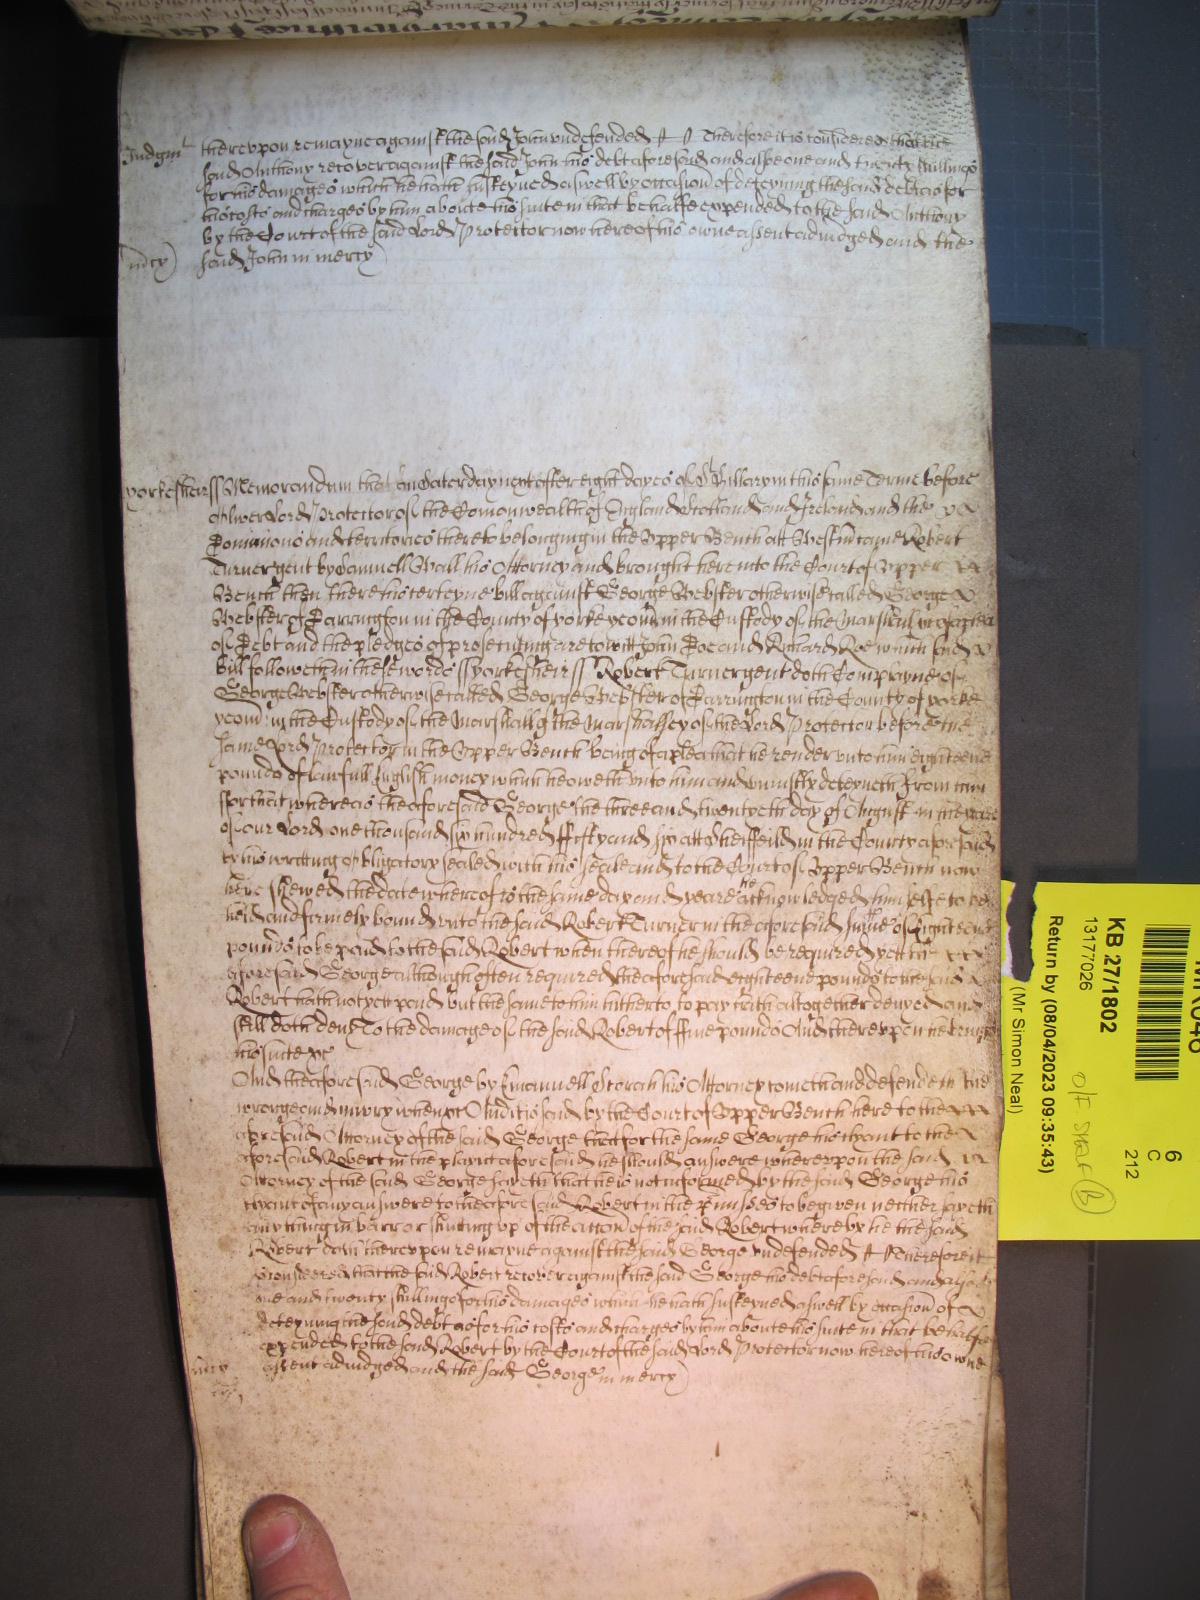 Judgmt thereupon remayne against the said John undefended Therefore it is considered that the
said Anthony recover against the said John his debt aforesaid and alsoe one and twenty shillings
for his damages which he hath susteyned aswell by occasion of deteyning the said debt as for
his costs and charges by him aboute his suite in that behalfe expended to the said Anthony
by the Court of the said Lord Protector now here of his owne assent adiudged and the
mcy) said John in mercy)
Yorkesheir ss Memorandum that on Saterday next after eight dayes of St Hillary in this same Terme before
Oliver Lord Protector of the Comonwealth of England Scotland and Ireland and the
Dominions and territories thereto belonging in the Upper Bench att Westm came Robert
Turner gent by Samuell Wall his Attorney and brought here into the Court of Upper
Bench then there his certeyne bill against George Webster otherwise called George
Webster of Barrington in the County of Yorke yeom in the Custody of the Marshall
of Debt and the pledges of prosecuting are to witt John Doe and Richard Roe which said
bill followeth in these words ss Yorkesheir ss Robert Turner gent doth Complayne of
George Webster otherwise called George Webster of Barrington in the County of Yorke
yeom in the Custody of the Marshall of the Marshalsey of the Lord Protector before the
same Lord Protector in the Upper Bench being of a plea that he render unto him eighteene
pounds of lawfull English money which he oweth unto him and uniustly deteyneth from him
ffor that whereas the aforesaid George the three and twentyeth day of August in the yeare
of our Lord one thousand six hundred ffifty and six att Sheiffeild in the County aforesaid
by his writting obligatory sealed with his seale and to the Court of Upper Bench now
here shewed the date whereof is the same day and yeare he acknowledged him selfe to be
held and firmely bound unto the said Robert Turner in the aforesaid summe of Eighteene
pounds to be paid to the said Robert when thereof he should be required yett the
aforesaid George although often required the aforesaid eighteene pounds to the said
Robert hath not yett paid but the same to him hitherto to pay hath altogether denyed and
still doth deny To the damage of the said Robert of ffive pounds And thereupon he brings
his suite &c
And the aforesaid George by Emanuell Storah his Attorney cometh and defendeth the
wrong and iniury when &c And it is said by the Court of Upper Bench here to the
aforesaid Attorney of the said George that for the same George his clyant to the
aforesaid Robert in the playnt aforesaid he should answere whereupon the said
Attorney of the said George sayeth that he is not informed by the said George his
clyant of any answere to the aforesaid Robert in the premisses to be given neither sayeth
any thing in barr or shutting up of the accon of the said Robert whereby he the said
Robert doth thereupon remayne against the said George undefended Therefore it
is considered that the said Robert recover against the said George his debt aforesaid and alsoe
one and twenty shillings for his damages which he hath susteyned aswell by occasion of
deteyning the said debt as for his costs and charges by him aboute his suite in that behalfe
expended to the said Robert by the Court of the said Lord Protector now here of his owne
mcy assent adiudged and the said George in mercy)
KB 27/1802
13177026
Return by (08/04/2023 09:35:43)
(Mr Simon Neal)
6
C
212